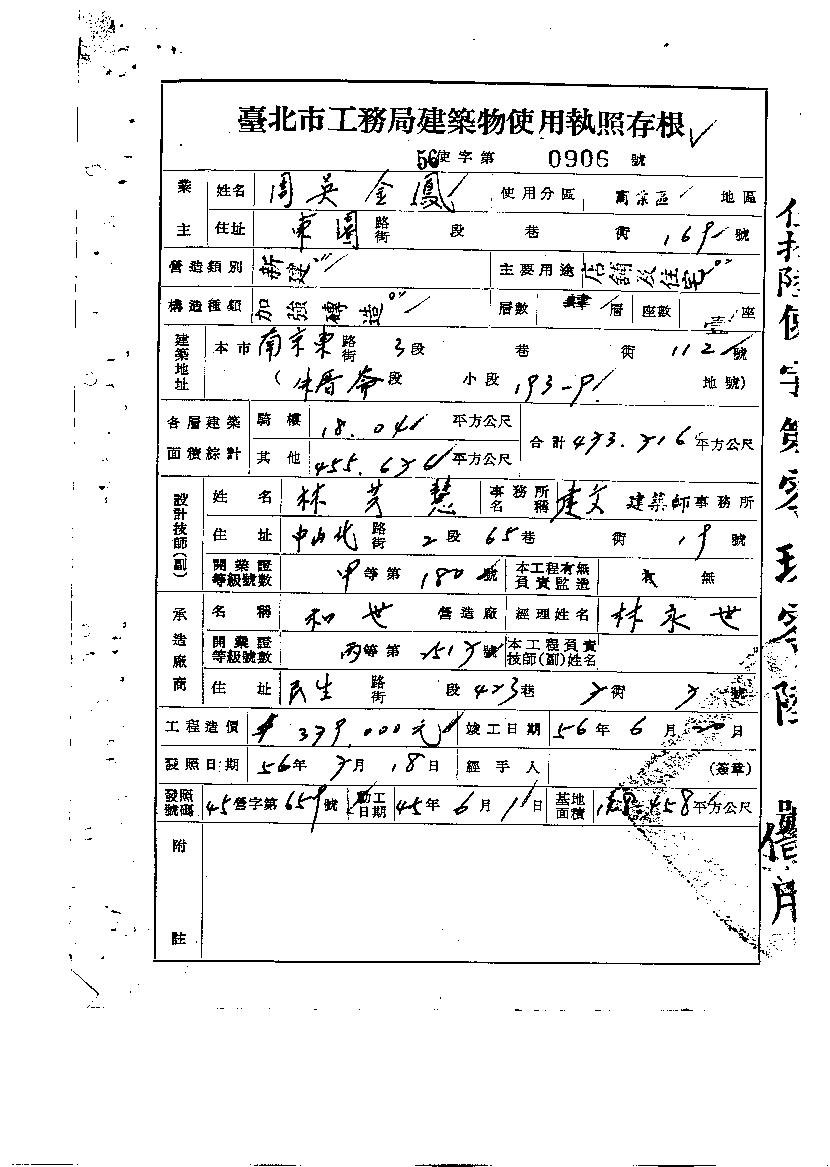 臺北市工務局建築物使用執照存根
56使字第 0906 號
業主 姓名 周吳金鳳 使用分區 商業區 地區
住址 東園路街 段 巷 街 169 號
營造類別 新建 主要用途 店舖及住宅
構造種類 加強磚造 層數 肆 層 座數 壹 座
建築地址 本市 南京東路街 3段 巷 街 112 號
(朱厝崙段 小段 193-9 地號)
各層建築面積綜計 騎樓 18.04 平方公尺 合計 平方公尺
其他 平方公尺
設計技師(副) 姓名 林芳慧 事務所名稱 建文 建築師事務所
住址 中山北路街 2段 65巷 街 19 號
開業證等級號數 甲等第 180 號 本工程有無負責監造 無
承造廠商 名稱 和世 營造廠 經理姓名 林永世
開業證等級號數 丙等第 號 本工程負責技師(副)姓名
住址 民生路街 段 423巷 7街 7 號
工程造價 元 竣工日期 56年 6月 20日
發照日期 56年 7月 18日 經手人 (簽章)
發照號碼 45營字第659號 動工日期 45年 6月 1日 基地面積 平方公尺
附註
使字第零玖零陸號